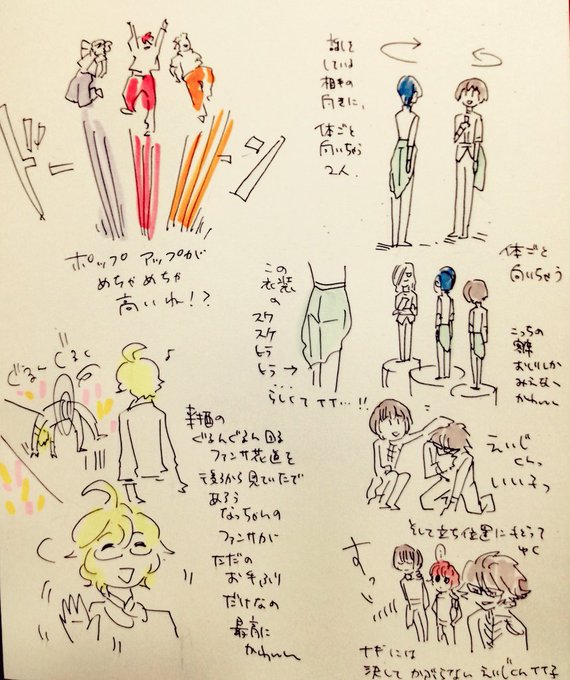 ドーーン
ポップアップが
めちゃめちゃ
高いわ!?
話して
している
相手の
向きに、
体ごと
向いちゃう
2人.
体ごと
向いちゃう
この
衣装
の
スケ
スケ
ヒラ
ヒラ→
...
らしくてイイ...!!
こっちの
客席
おしりしか
みえない
かわいい
ぐるーんぐるん
♪
ぐるんぐるん回る
ファンサ花道を
後ろから見ていたで
あろう
なっちゃんの
ファンサが
ただの
お手ふり
だけなの
最高に
かわいい
えいじ
くんっ
いい子っ
そして立ち位置にもどって
ゆく
すっ
ナギには
決してかぶらないえいじくんイイ子